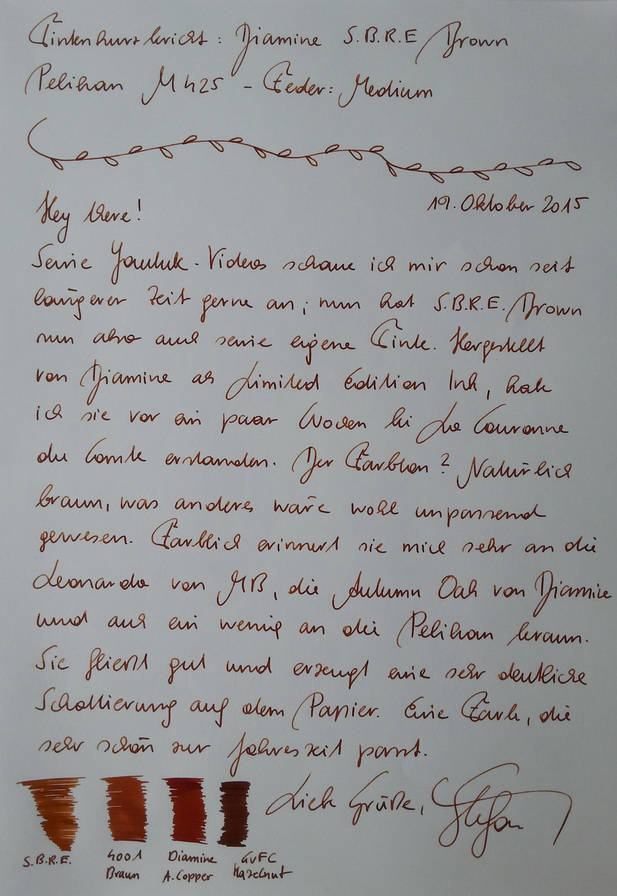 Tintenkurzbericht: Diamine S.B.R.E Brown
Pelikan M425 - Feder: Medium
19. Oktober 2015
Hey there!
Seine Youtube-Videos schaue ich mir schon seit
längerer Zeit gerne an; nun hat S.B.R.E. Brown
nun also auch seine eigene Tinte. Hergestellt
von Diamine als Limited Edition Ink, habe
ich sie vor ein paar Wochen bei La Couronne
du Comte erstanden. Der Farbton? Natürlich
braun, was anderes wäre wohl unpassend
gewesen. Farblich erinnert sie mich sehr an die
Leonardo von MB, die Autumn Oak von Diamine
und auch ein wenig an die Pelikan braun.
Sie fließt gut und erzeugt eine sehr deutliche
Schattierung auf dem Papier. Eine Farbe, die
sehr schön zur Jahreszeit passt.
Liebe Grüße, Stefan
S.B.R.E.
4001 Braun
Diamine A.Copper
GvFC Hazelnut